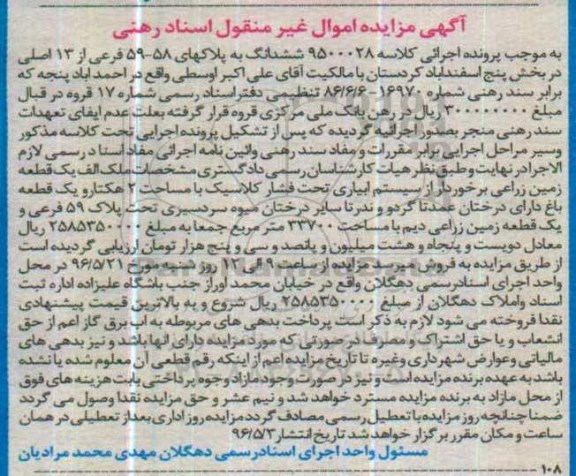 آگهی مزایده اموال غیر منقول اسناد رهنی
به موجب پرونده اجرائی کلاسه ۹۵۰۰۰۲۸ ششدانگ به پلاکهای ۵۸-۵۹ فرعی از ۱۳ اصلی
در بخش پنج اسفنداباد کردستان با مالکیت آقای علی اکبر اوسطی واقع در احمد اباد پنجه که
برابر سند رهنی شماره ۱۶۹۷۰-۸۶/۶/۶ تنظیمی دفتر اسناد رسمی شماره ۱۷ قروه در قبال
مبلغ ۳۰۰۰۰۰۰۰۰۰ ریال در رهن بانک ملی مرکزی قروه قرار گرفته بعلت عدم ایفای تعهدات
سند رهنی منجر بصدور اجرائیه گردیده که پس از تشکیل پرونده اجرایی تحت کلاسه مذکور
وسیر مراحل اجرایی برابر مقررات و مفاد سند رهنی وائین نامه اجرائی مفاد اسنا د رسمی لازم
الاجرا در نهایت و طبق نظر هیات کارشناسان رسمی دادگستری مشخصات ملک الف یک قطعه
زمین زراعی برخوردار از سیستم ابیاری تحت فشار کلاسیک با مساحت ۲ هکتار و یک قطعه
باغ دارای درختان عمدتا گردو و ندرتا سایر درختان میوه سردسیری تحت پلاک ۵۹ فرعی و
یک قطعه زمین زراعی دیم با مساحت ۳۳۷۰۰ متر مربع جمعا به مبلغ ۲۵۸۵۳۵۰۰۰۰ ریال
معادل دویست و پنجاه و هشت میلیون و پانصد و سی و پنج هزار تومان ارزیابی گردیده است
از طریق مزایده به فروش میرسد مزایده از ساعت ۹ الی ۱۲ روز مورخ ۹۶/۵/۲۱ در محل
واحد اجرای اسناد رسمی دهگلان واقع در خیابان محمد اوراز جنب باشگاه علیزاده اداره ثبت
اسناد واملاک دهگلان از مبلغ ۲۵۸۵۳۵۰۰۰۰ ریال شروع و به بالاترین قیمت پیشنهادی
نقدا فروخته می شود لازم به ذکر است پرداخت بدهی های مربوطه به اب برق گاز اعم از حق
انشعاب و یا حق اشتراک و مصرف در صورتی که مورد مزایده دارای انها باشد و نیز بدهی های
مالیاتی و عوارض شهرداری وغیره تا تاریخ مزایده اعم از اینکه رقم قطعی آن معلوم شده یا نشده
باشد به عهده برنده مزایده است و نیز در صورت وجود مازاد وجوه پرداختی بابت هزینه های فوق
از محل مازاد به برنده مزایده مسترد خواهد شد و نیم عشر و حق مزایده نقدا وصول می گردد
ضمنا چنانچه روز مزایده با تعطیل رسمی مصادف گردد مزایده روز اداری بعد از تعطیلی در همان
ساعت و مکان مقرر برگزار خواهد شد تاریخ انتشار ۹۶/۵/۳
مسئول واحد اجرای اسناد رسمی دهگلان مهدی محمد مرادیان
۱۰۸